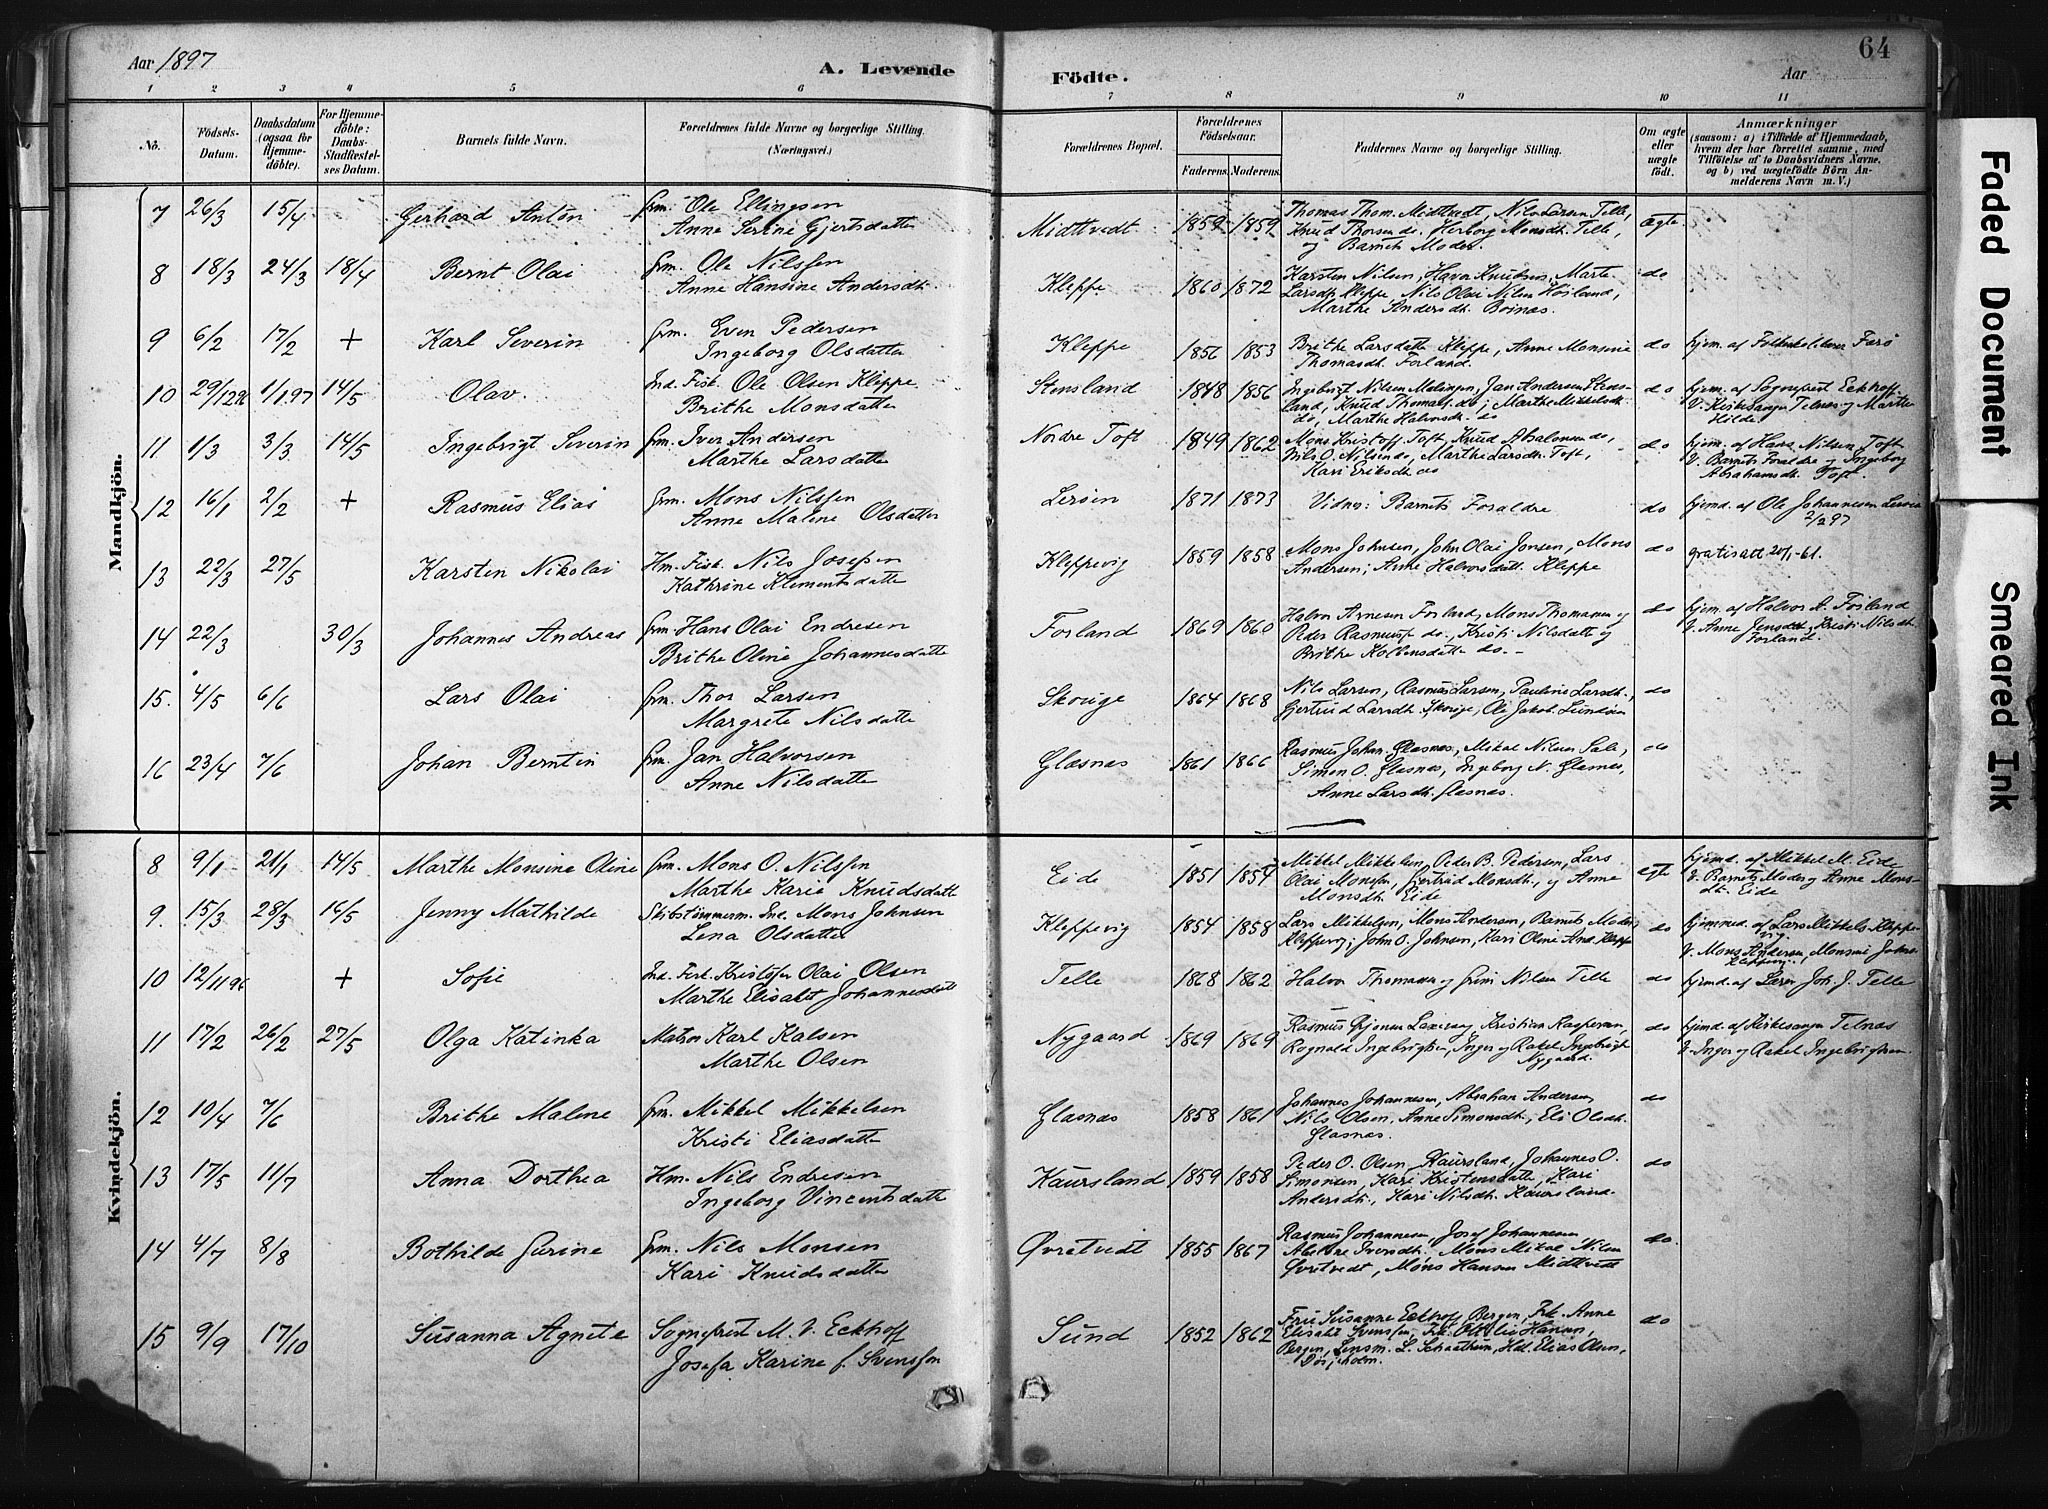 Aar 1897
A. Levende
Födte.
Aar
64
1 2 3 4 5 6 7 8 9 10 11
No.
Födsels-Datum.
Daabsdatum (ogsaa for Hjemme-döbte).
For Hjemme-döbte: Daabs-Stadfæstel-ses Datum.
Barnets fulde Navn.
Forældrenes fulde Navne og borgerlige Stilling. (Næringsvei.)
Forældrenes Bopæl.
Forældrenes Födselsaar.
Faderens. Moderens.
Faddernes Navne og borgerlige Stilling.
Om ægte eller uægte födt.
Anmærkninger
(saasom: a) i Tilfælde af Hjemmedaab,
hvem der har forrettet samme, med
Tilföielse af to Daabsvidners Navne,
og b) ved uægtefödte Börn An-
melderens Navn m. V.)
Mandkjön.
7 26/3 15/4 Gerhard Anton grm. Ole Ellingsen Midttvedt 1859 1859 Thomas Thom. Midttvedt, Nils Larsen Telle, Ægte
Anne Serine Gjertsdatter Knud Thorsen do. Herborg Monsdt. Telle,
og Barnets Moder.
8 18/3 24/3 18/4 Bernt Olai grm. Ole Nilssen Kleppe 1860 1872 Karsten Nilsen, Havor Knutsen, Marte do
Anne Hansine Andersdt. Larsdt. Kleppe, Nils Olai Nilsen Höiland,
Marthe Andersdt. Boinæs.
9 6/2 17/2 + Karl Severin grm. Even Pedersen Kleppe 1856 1853 Brithe Larsdatter Kleppe, Anne Monsine do hjem. af
Ingeborg Olsdatter Thomasdt. Forland.
10 29/12 96 1/1 97 14/5 Olav. Ind. Fisk. Ole Olsen Kleppe Stensland 1848 1856 Ingebrigt Nilsen Malingen, Jan Andersen Stens- do hjem. af Sogneprest Eckhoff
Brithe Monsdatter land, Knud Thomass. do; Marthe Mikkelsdt. V. Kirkesanger Telnæs og Marthe
do, Marthe Halvorsdt. do Hilde.
11 1/3 3/3 14/5 Ingebrigt Severin grm. Iver Andersen Nordre Toft 1849 1862 Mons Kristoff. Toft, Knud Absalonsen do, do hjem. af Hans Nilsen Toft
Marthe Larsdatter Nils O. Nilsen do, Marthe Larsdt. Toft, V. Barnets Foraldre og Ingeborg
Kari Eriksdt. do Abrahamsdt. Toft.
12 16/1 2/2 + Rasmus Elias grm. Mons Nilssen Leröen 1871 1873 Vidner: Barnets Foraldre do hjemd. af Ole Johannesen Leröen
Anne Malene Olsdatter 2/2 97
13 22/3 27/5 Karsten Nikolai Hm. Fisk. Nils Josefsen Kleppevig 1859 1858 Mons Johnsen, John Olai Jonsen, Mons do gratisatt. 20/1-61.
Kathrine Klementsdatter Andersen; Anne Halvorsdatt. Kleppe
14 22/3 30/3 Johannes Andreas grm. Hans Olai Endresen Forland 1869 1860 Halvor Arnesen Forland, Mons Thomassen og do hjem. af Halvor A. Forland
Brithe Oline Johannesdatter Peder Rasmuss. do., Kristi Nilsdatter og V. Anne Jensdt., Kristi Nilsdt.
Brithe Kolbensdatter do. Forland.
15. 4/5 6/6 Lars Olai grm. Thor Larsen Skouge 1864 1868 Nils Larsen, Rasmus Larsen, Pauline Larsdt., do
Margrete Nilsdatter Gjertrud Larsdt. Skouge, Ole Jakob Lundøen
16 23/4 7/6 Johan Berntin grm. Jan Halvorsen Glæsnæs 1861 1866 Rasmus Johan. Glæsnæs, Mikal Nilsen Sale, do
Anne Nilsdatter Simon O. Glæsnæs, Ingeborg N. Glæsnæs,
Anne Larsdt. Glæsnæs.
Kvindekjön.
8 9/1 21/1 14/5 Marthe Monsine Oline grm. Mons O. Nilssen Eide 1851 1854 Mikkel Mikkelsen, Peder B. Pedersen, Lars egte hjemd. af Mikkel M. Eide
Marthe Karie Knudsdatter Olai Monssen, Gjertrud Monsdt., og Anne V. Barnets Moder og Anne Mons-
Monsdt. Eide dt. Eide
9. 15/3 28/3 16/5 Jenny Mathilde Skibstømmerm. Ind. Mons Johnsen Kleppevig 1854 1858 Lars Mikkelsen, Mons Andersen, Barnets Moder do hjemmed. af Lars Mikkels. Kleppe-
Lena Olsdatter Kleppevig; John O. Johnsen, Kari Oline And. Kleppe vig
V. Mons Andersen, Monsine Johns.
Kleppevig.
10 12/11 96 + Sofie Ind. Fisk. Kristofer Olai Olsen Telle 1868 1862 Halvor Thomassen og Grim Nilsen Telle do hjemd. af Lærer Joh. J. Telle
Marthe Elisabet Johannesdatter
11 17/2 26/2 27/5 Olga Katinka Matros Karl Kalsen Nygaard 1869 1869 Rasmus, Kristian Kaspersen, do hjemd. af Kirkesanger Telnæs
Marthe Olsen Rognald Ingebrigtsen, Inger og Rakel Ingebrigts. V. Inger og Rakel Ingebrigtsen.
Nygaard.
12 10/4 7/6 Brithe Malene grm. Mikkel Mikkelsen Glæsnæs 1858 1861 Johannes Johannesen, Abraham Andersen, do
Kristi Eliasdatter Nils Olsen, Anne Simonsdt., Eli Olsdt.
Glæsnæs.
13 17/5 11/7 Anna Dorthea Hm. Nils Endresen Kaursland 1859 1858 Peder O. Olsen Kaursland, Johannes O. do
Ingeborg Vincentsdatter Simonsen, Kari Kristensdatter, Kari
Andersdt., Kari Nilsdt. Kaursland.
14 4/7 8/8 Bothilde Gurine grm. Nils Monsen Øvretvedt 1855 1867 Rasmus Johannesen, Josef Johannesen do.
Kari Knudsdatter Abelone Iversdt. Mons Mikal Nilsen
Øvretvedt, Mons Hansen Midttvedt
15 9/9 17/10 Susanna Agnete Sogneprest M. V. Eckhoff Sund 1852 1862 Fru Susanne Eckhoff, Bergen, Frk. Anne do
Josefa Karine f. Svenssen Elisabet Svenssen, Frk. Ottilie Hansen,
Bergen, Lensm. L. Schaathun, Hdl. Elias Olsen,
Faded Document
Smeared Ink